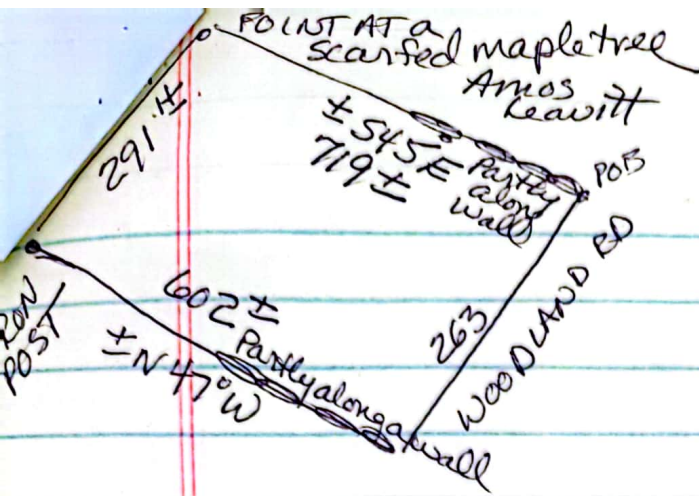 POINT AT a
scarfed maple tree
Amos
Leavitt
291'±
± S45E
719±
Partly
along
wall
POB
WOODLAND RD
263
602±
± N 47° W
Partly along a wall
IRON
POST